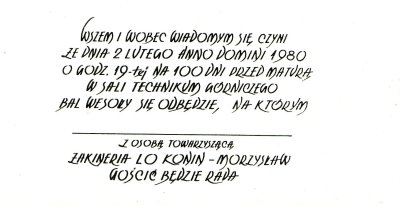 WSZEM I WOBEC WIADOMYM SIĘ CZYNI
ŻE DNIA 2 LUTEGO ANNO DOMINI 1980
O GODZ. 19-tej NA 100 DNI PRZED MATURĄ
W SALI TECHNIKUM GÓRNICZEGO
BAL WESOŁY SIĘ ODBĘDZIE, NA KTÓRYM
Z OSOBĄ TOWARZYSZĄCĄ
ŻAKINERIA LO KONIN - MORZYSŁAW
GOŚCIĆ BĘDZIE RADA